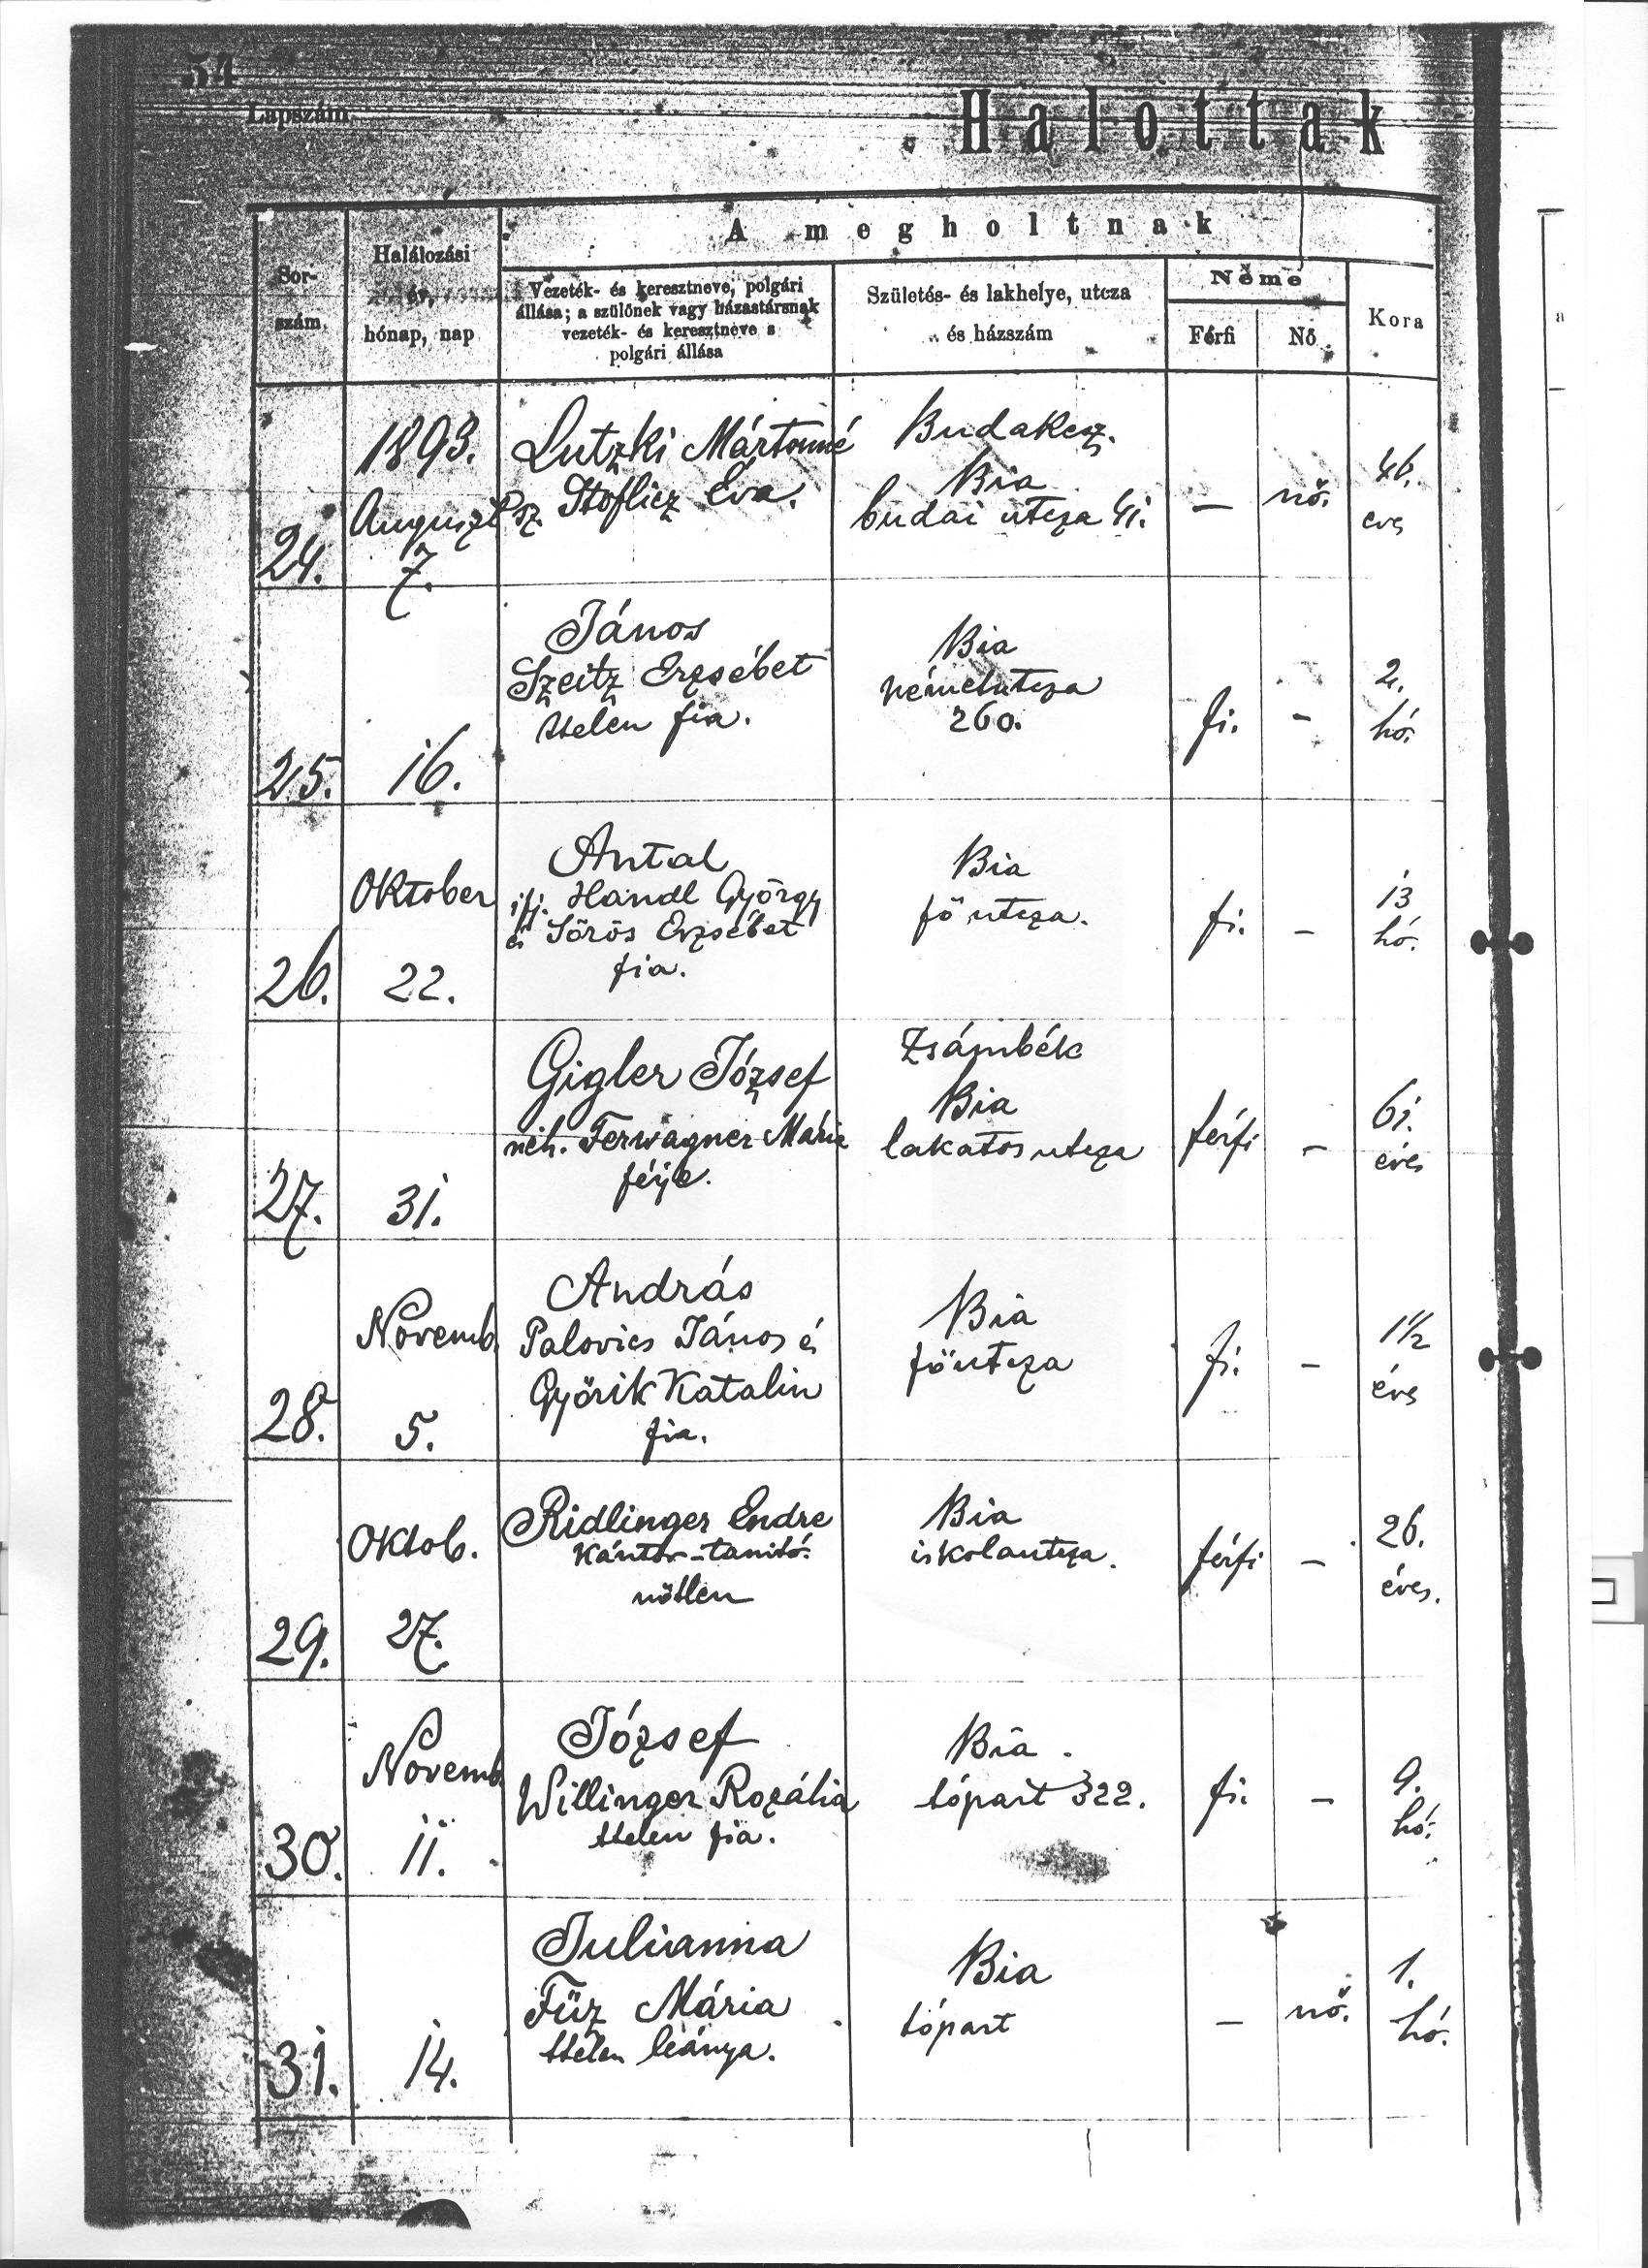 54
Lapszám
Halottak
A megholtnak
Sor-
szám
Halálozási
év,
hónap, nap
Vezeték- és keresztneve, polgári
állása; a szülőnek vagy házastársnak
vezeték- és keresztneve s
polgári állása
Születés- és lakhelye, utcza
és házszám
Neme
Férfi
Nő
Kora
24.
1893.
August
7.
Lutzki Mártonné
sz. Stoflicz Éva.
Budakesz.
Bia
budai utcza 41.
—
nő.
46.
éves
25.
16.
János
Szeitz Erzsébet
ttelen fia.
Bia
németutcza
260.
fi.
-
2.
hó.
26.
Oktober
22.
Antal
ifj. Handl György
és Sörös Erzsébet
fia.
Bia
fő utcza.
fi.
-
13
hó.
27.
31.
Gigler József
néh. Ferwagner Mária
férje.
Zsámbék
Bia
lakatos utcza
férfi
-
61.
éves
28.
Novemb.
5.
András
Palovics János és
Győrik Katalin
fia.
Bia
főutcza
fi.
-
1 1/2
éves
29.
Oktob.
27.
Ridlinger Endre
kántor-tanító.
nőtlen
Bia
iskolautcza.
férfi
-
26.
éves.
30.
Novemb.
11.
József
Willinger Rozália
ttelen fia.
Bia
tópart 322.
fi.
-
9.
hó.
31.
14.
Julianna
Fűz Mária
ttelen leánya.
Bia
tópart
—
nő.
1.
hó.